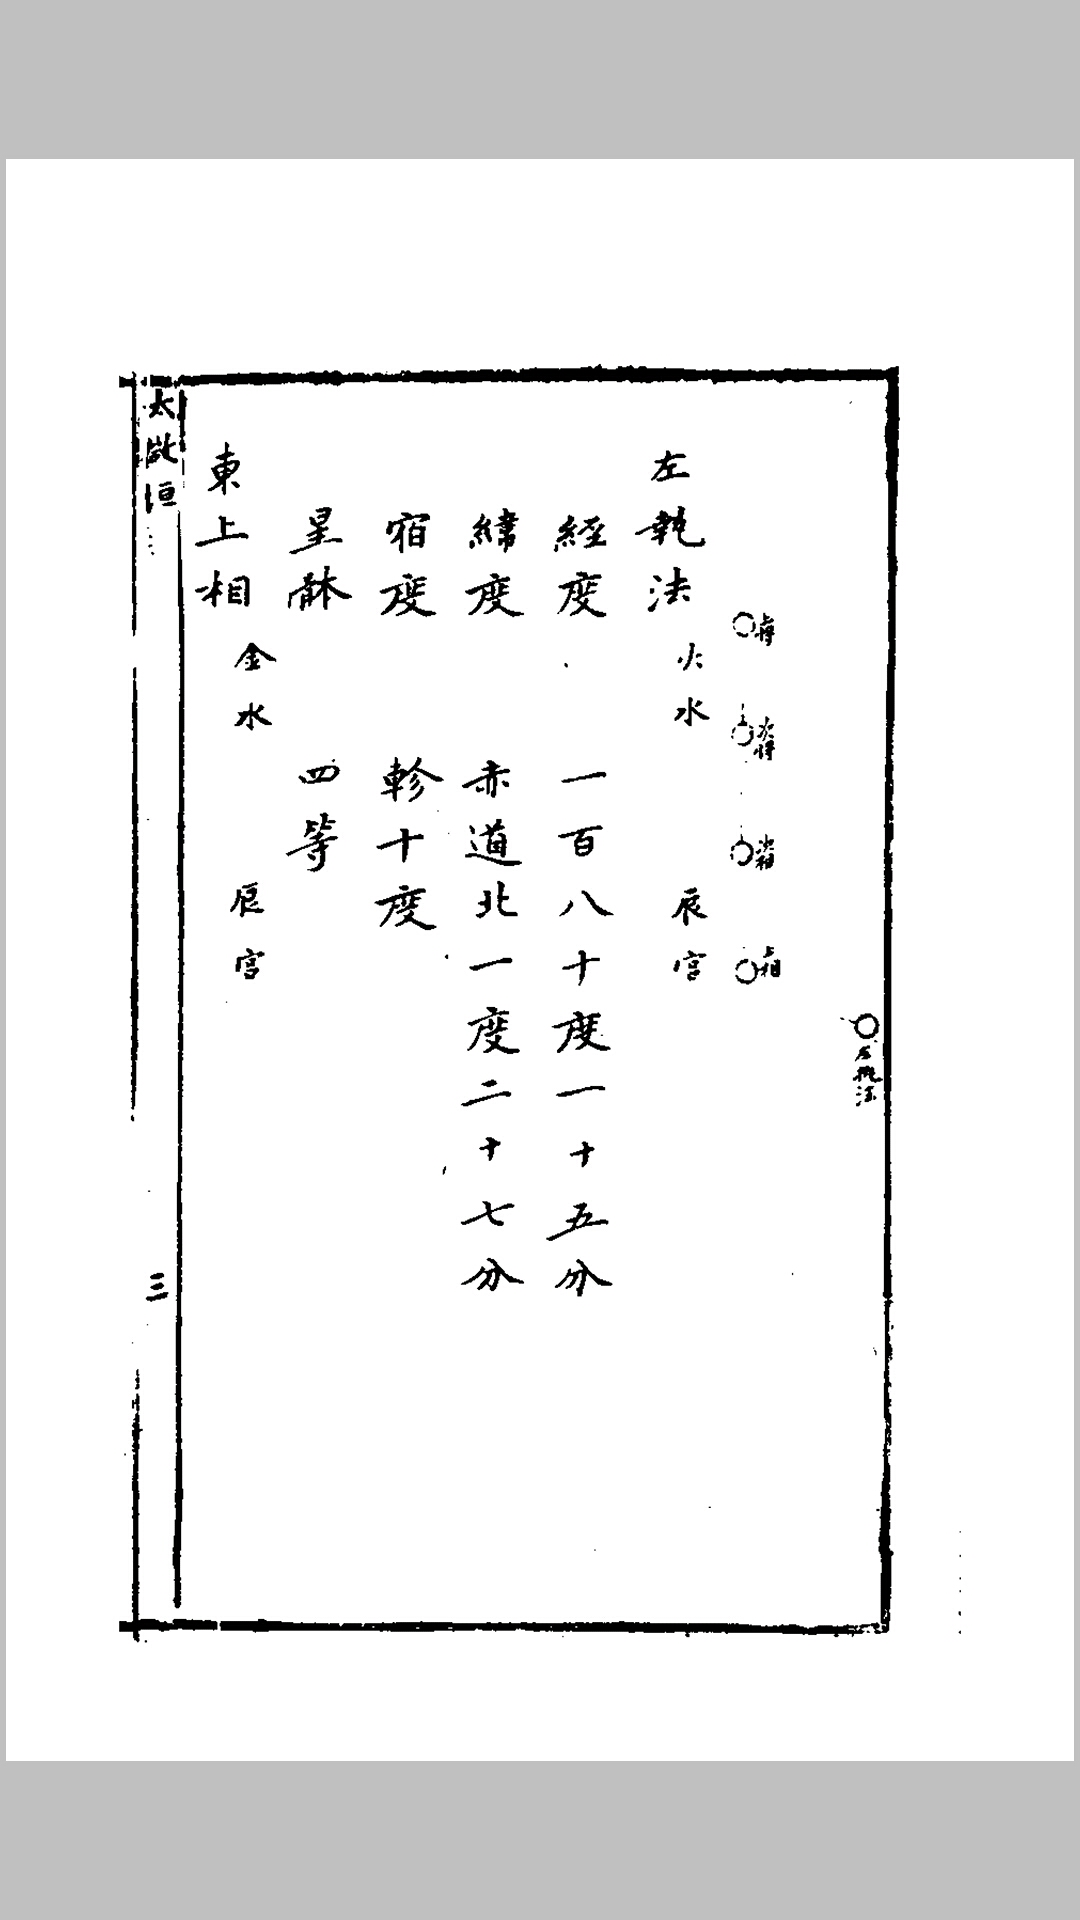 左執法
上將
次將
次相
上相
左執法 火水 辰宮
經度 一百八十度一十五分
緯度 赤道北一度二十七分
宿度 軫十度
星體 四等
東上相 金水 辰宮
太微垣
三